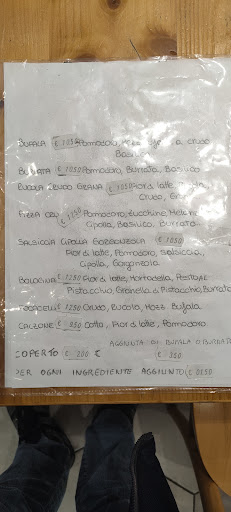 BUFALA € 1050 Pomodoro, Mozz a crudo
Basilico
BURRATA € 1050 Pomodoro, Burrata, Basilico
RUCOLA CRUDO GRANA € 1050 Fior di latte,
Crudo,
PIZZA € 1250 Pomodoro, Zucchine,
Cipolla, Basilico, Burrata
SALSICCIA CIPOLLA GORGONZOLA € 1050
Fior di latte, Pomodoro, Salsiccia,
Cipolla, Gorgonzola
BOLOGNA € 1250 Fior di latte, Mortadella,
Pistacchio, Granella di Pistacchio, Burrata
€ 1250 Crudo, Rucola, Mozz Bufala
CALZONE € 950 Cotto, Fior di latte, Pomodoro
AGGIUNTA DI BUFALA O BURRATA
COPERTO € 200 € € 350
PER OGNI INGREDIENTE AGGIUNTO € 0150